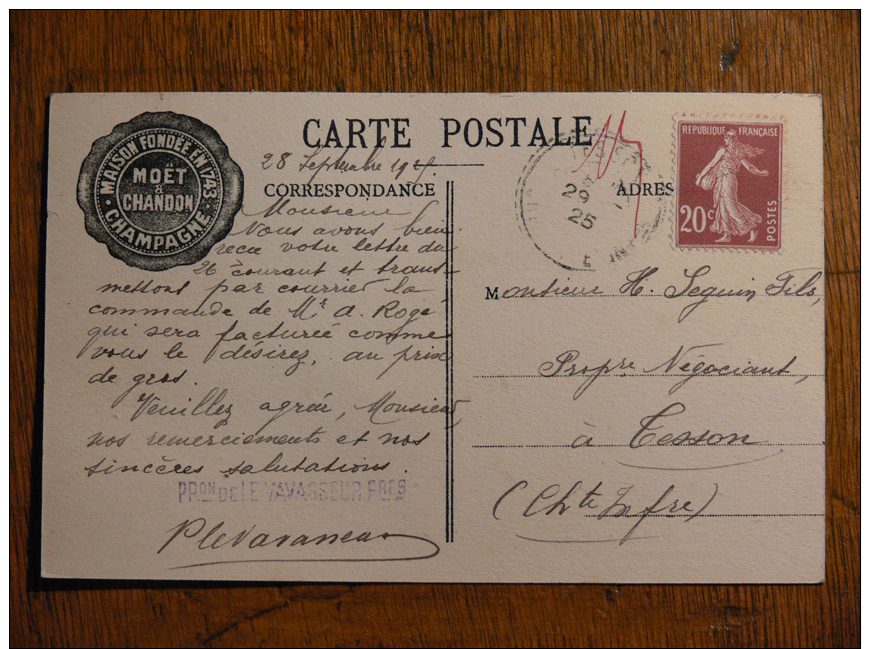 MAISON FONDÉE EN 1743
MOËT
&
CHANDON
CHAMPAGNE
CARTE POSTALE
28 Septembre 19
CORRESPONDANCE
ADRES
29
25
REPUBLIQUE FRANÇAISE
20c
POSTES
Monsieur
Vous avons bien
reçu votre lettre du
26 courant et trans-
mettons par courrier la
commande de Mr A. Rogé
qui sera facturée comme
vous le désirez, au prix
de gros.
Veuillez agréer, Monsieur,
nos remerciements et nos
sincères salutations.
PPON DE LE VAVASSEUR FRES
P Levavasseur
Monsieur H. Seguin Fils,
Propre Négociant,
à Tesson
(Chte Infre)